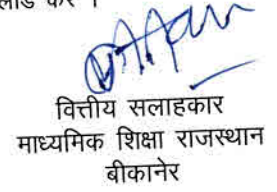 करें ।
वित्तीय सलाहकार
माध्यमिक शिक्षा राजस्थान
बीकानेर